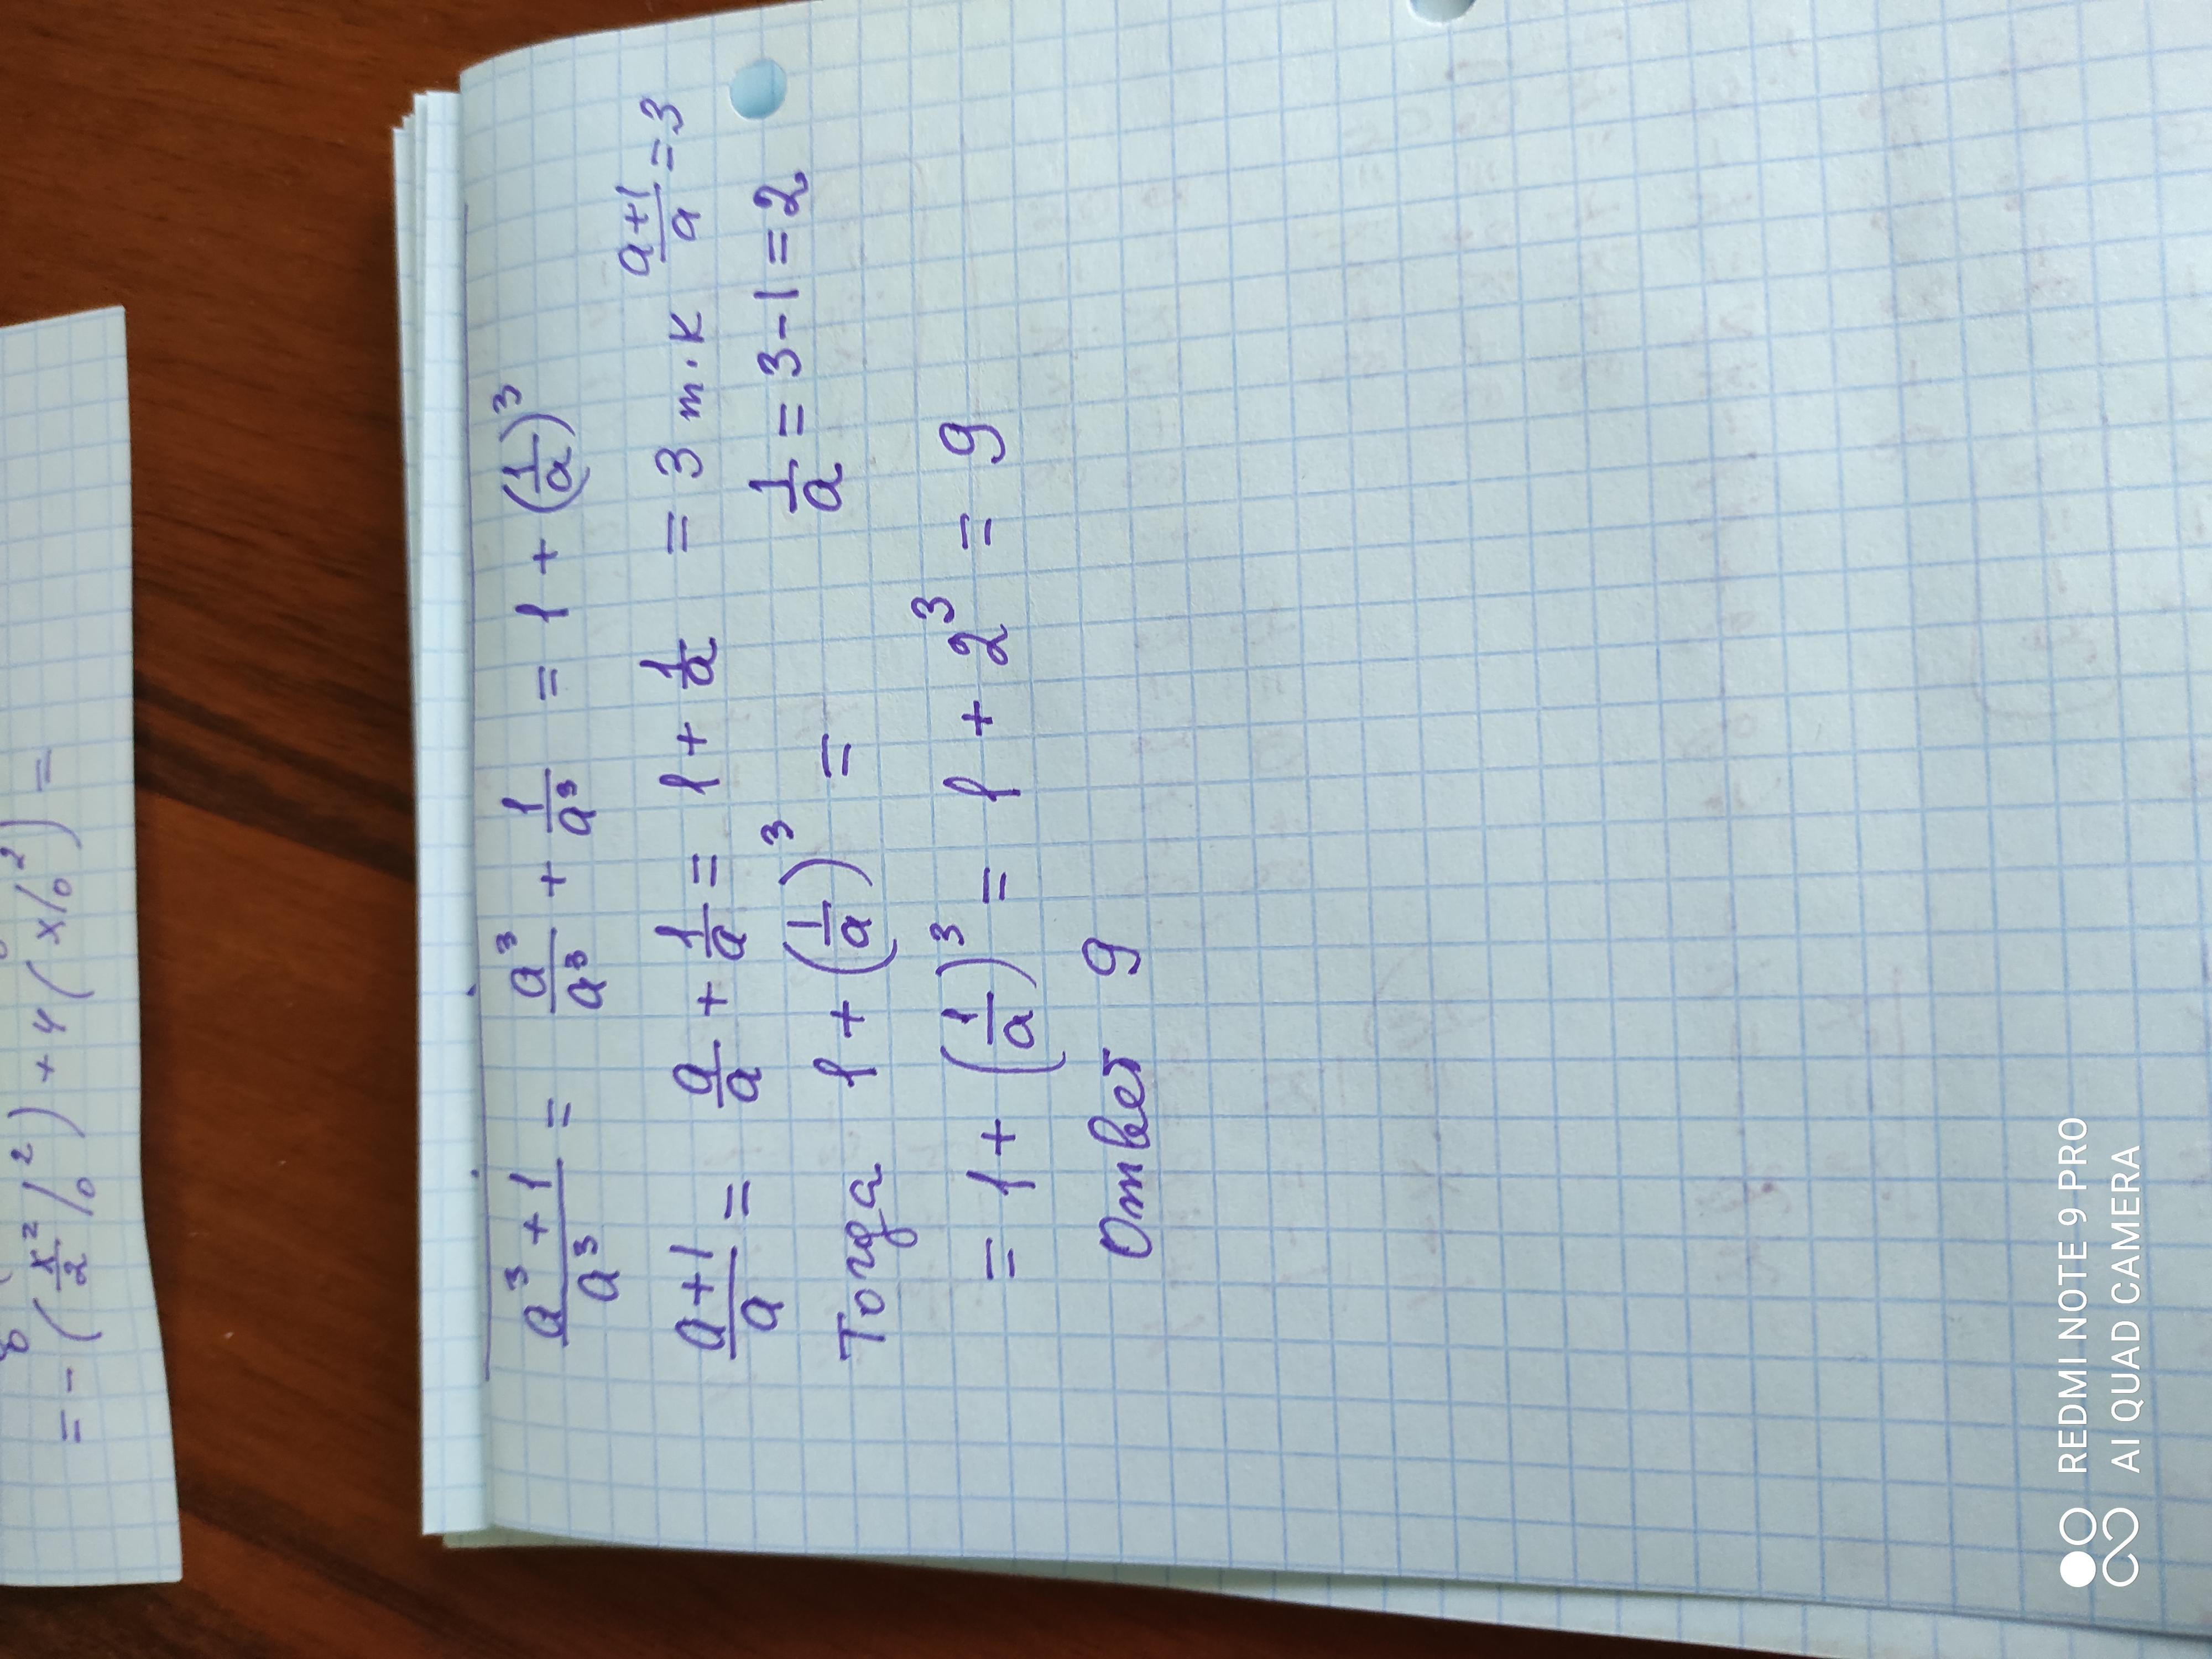 = - (x²/2 |₀²) + 4 (x|₀²) =
(a³+1)/a³ = a³/a³ + 1/a³ = 1 + (1/a)³
(a+1)/a = a/a + 1/a = 1 + 1/a = 3 т.к (a+1)/a = 3
1/a = 3-1 = 2
Тогда 1 + (1/a)³ =
= 1 + (1/a)³ = 1 + 2³ = 9
Ответ 9
REDMI NOTE 9 PRO
AI QUAD CAMERA